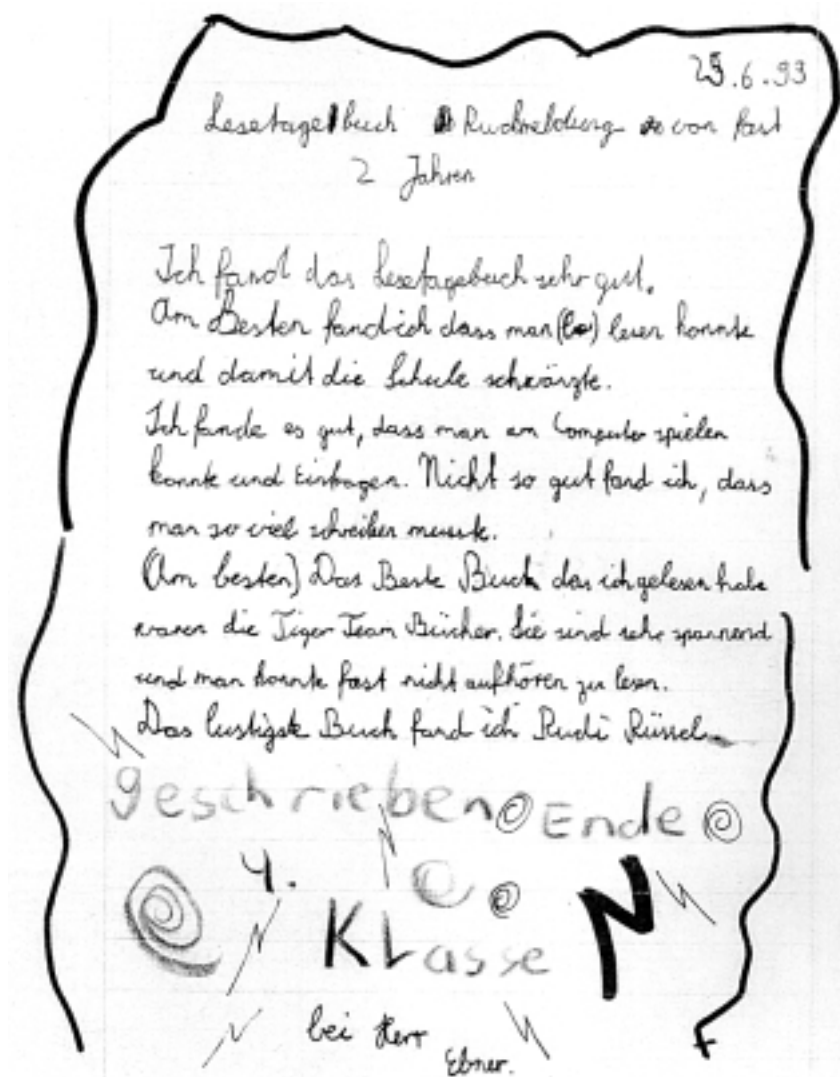 25.6.93
Lesetagebuch Rückmeldung von fast
2 Jahren
Ich fand das Lesetagebuch sehr gut.
Am Besten fand ich dass man (le) lesen konnte
und damit die Schule schwänzte.
Ich fande es gut, dass man am Computer spielen
konnte und Eintragen. Nicht so gut fand ich, dass
man so viel schreiben musste.
(Am besten) Das Beste Buch das ich gelesen habe
waren die Tiger Team Bücher. Sie sind sehr spannend
und man konnte fast nicht aufhören zu lesen.
Das lustigste Buch fand ich Rudi Rüssel.
geschrieben Ende
4.
Klasse
bei Herr
Ebner.